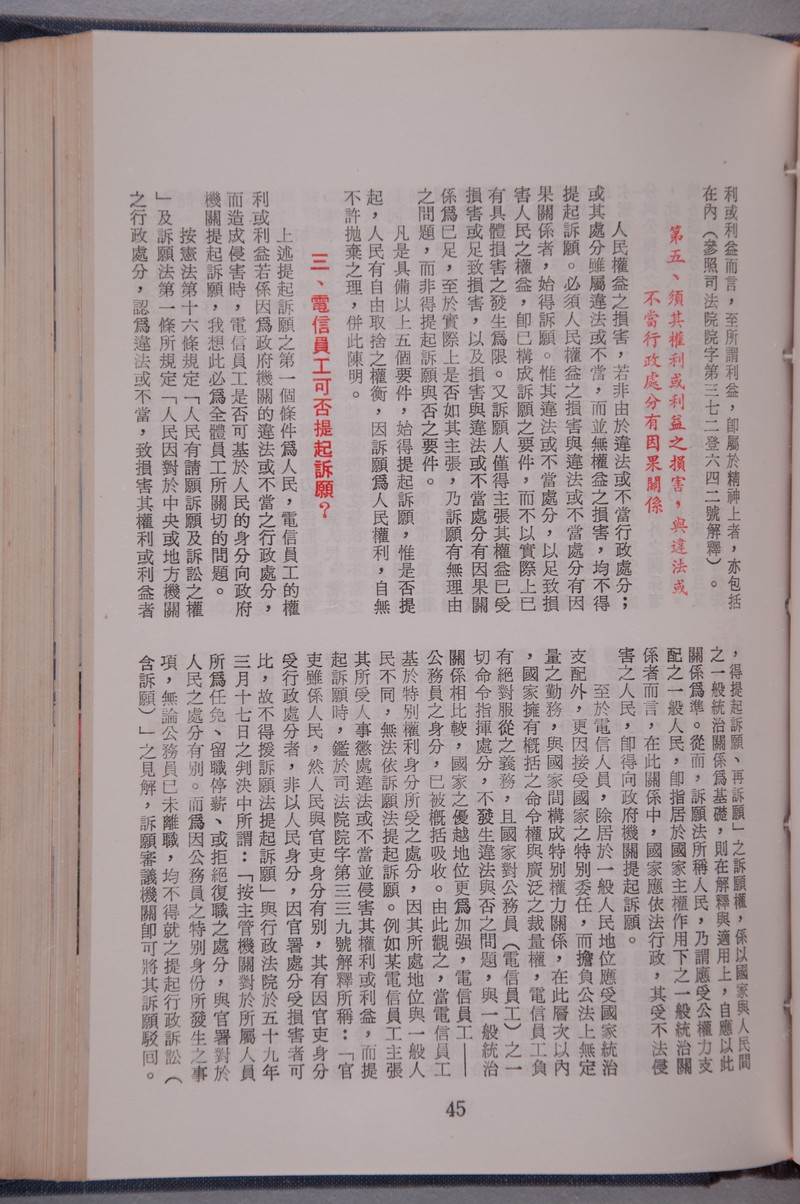 利或利益而言，至所謂利益，卽屬於精神上者，亦包括
在內（參照司法院院字第三七二登六四二號解釋）。
第五、須其權利或利益之損害，與違法或
不當行政處分有因果關係
人民權益之損害，若非由於違法或不當行政處分；
或其處分雖屬違法或不當，而並無權益之損害，均不得
提起訴願。必須人民權益之損害與違法或不當處分有因
果關係者，始得訴願。惟其違法或不當處分，以足致損
害人民之權益，卽已構成訴願之要件，而不以實際上已
有具體損害之發生爲限。又訴願人僅得主張其權益已受
損害或足致損害，以及損害與違法或不當處分有因果關
係爲已足，至於實際上是否如其主張，乃訴願有無理由
之問題，而非得提起訴願與否之要件。
凡是具備以上五個要件，始得提起訴願，惟是否提
起，人民有自由取捨之權衡，因訴願爲人民權利，自無
不許拋棄之理，併此陳明。
三、電信員工可否提起訴願？
上述提起訴願之第一個條件爲人民，電信員工的權
利或利益若係因爲政府機關的違法或不當之行政處分，
而造成侵害時，電信員工是否可基於人民的身分向政府
機關提起訴願，我想此必爲全體員工所關切的問題。
按憲法第十六條規定「人民有請願訴願及訴訟之權
」及訴願法第一條所規定「人民因對於中央或地方機關
之行政處分，認爲違法或不當，致損害其權利或利益者
，得提起訴願、再訴願」之訴願權，係以國家與人民間
之一般統治關係爲基礎，則在解釋與適用上，自應以此
關係爲準。從而，訴願法所稱人民，乃謂應受公權力支
配之一般人民，卽指居於國家主權作用下之一般統治關
係者而言，在此關係中，國家應依法行政，其受不法侵
害之人民，卽得向政府機關提起訴願。
至於電信人員，除居於一般人民地位應受國家統治
支配外，更因接受國家之特別委任，而擔負公法上無定
量之勤務，與國家間構成特別權力關係，在此層次以內
，國家擁有概括之命令權與廣泛之裁量權，電信員工負
有絕對服從之義務，且國家對公務員（電信員工）之一
切命令指揮處分，不發生違法與否之問題，與一般統治
關係相比較，國家之優越地位更爲加强，電信員工——
公務員之身分，已被概括吸收。由此觀之，當電信員工
基於特別權利身分所受之處分，因其所處地位與一般人
民不同，無法依訴願法提起訴願。例如某電信員工主張
其所受人事懲處違法或不當並侵害其權利或利益，而提
起訴願時，鑑於司法院院字第三三九號解釋所稱：「官
吏雖係人民，然人民與官吏身分有別，其有因官吏身分
受行政處分者，非以人民身分，因官署處分受損害者可
比，故不得援訴願法提起訴願」與行政法院於五十九年
三月十七日之判決中所謂：「按主管機關對於所屬人員
所爲任免、留職停薪、或拒絕復職之處分，與官署對於
人民之處分有別。而爲因公務員之特別身份所發生之事
項，無論公務員已未離職，均不得就之提起行政訴訟（
含訴願）」之見解，訴願審議機關卽可將其訴願駁回。
45